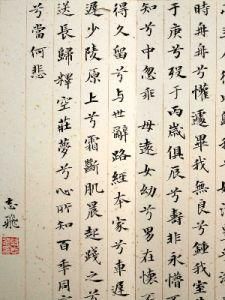 時冉冉兮懽遽畢我無良兮鍾我室
于庚兮歿于丙歲俱辰兮壽非永懵
知兮中忽乖母遠女幼兮男在懷
得久留兮与世辭路經本家兮車遲
遲少陵原上兮霜斷肌晨起踐之兮
送長歸釋空莊夢兮心所知百年同
兮當何悲
志飛